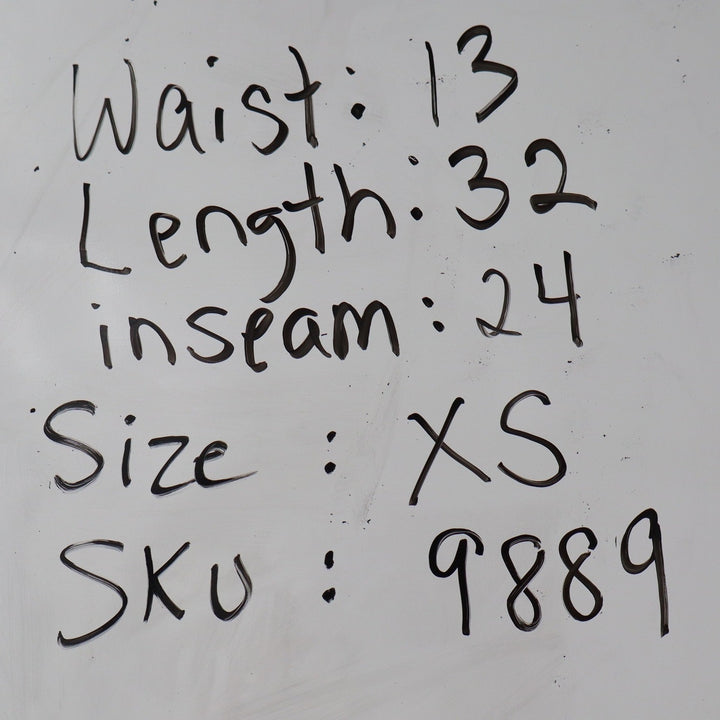 Waist: 13
Length: 32
inseam: 24
Size : XS
SKU : 9889